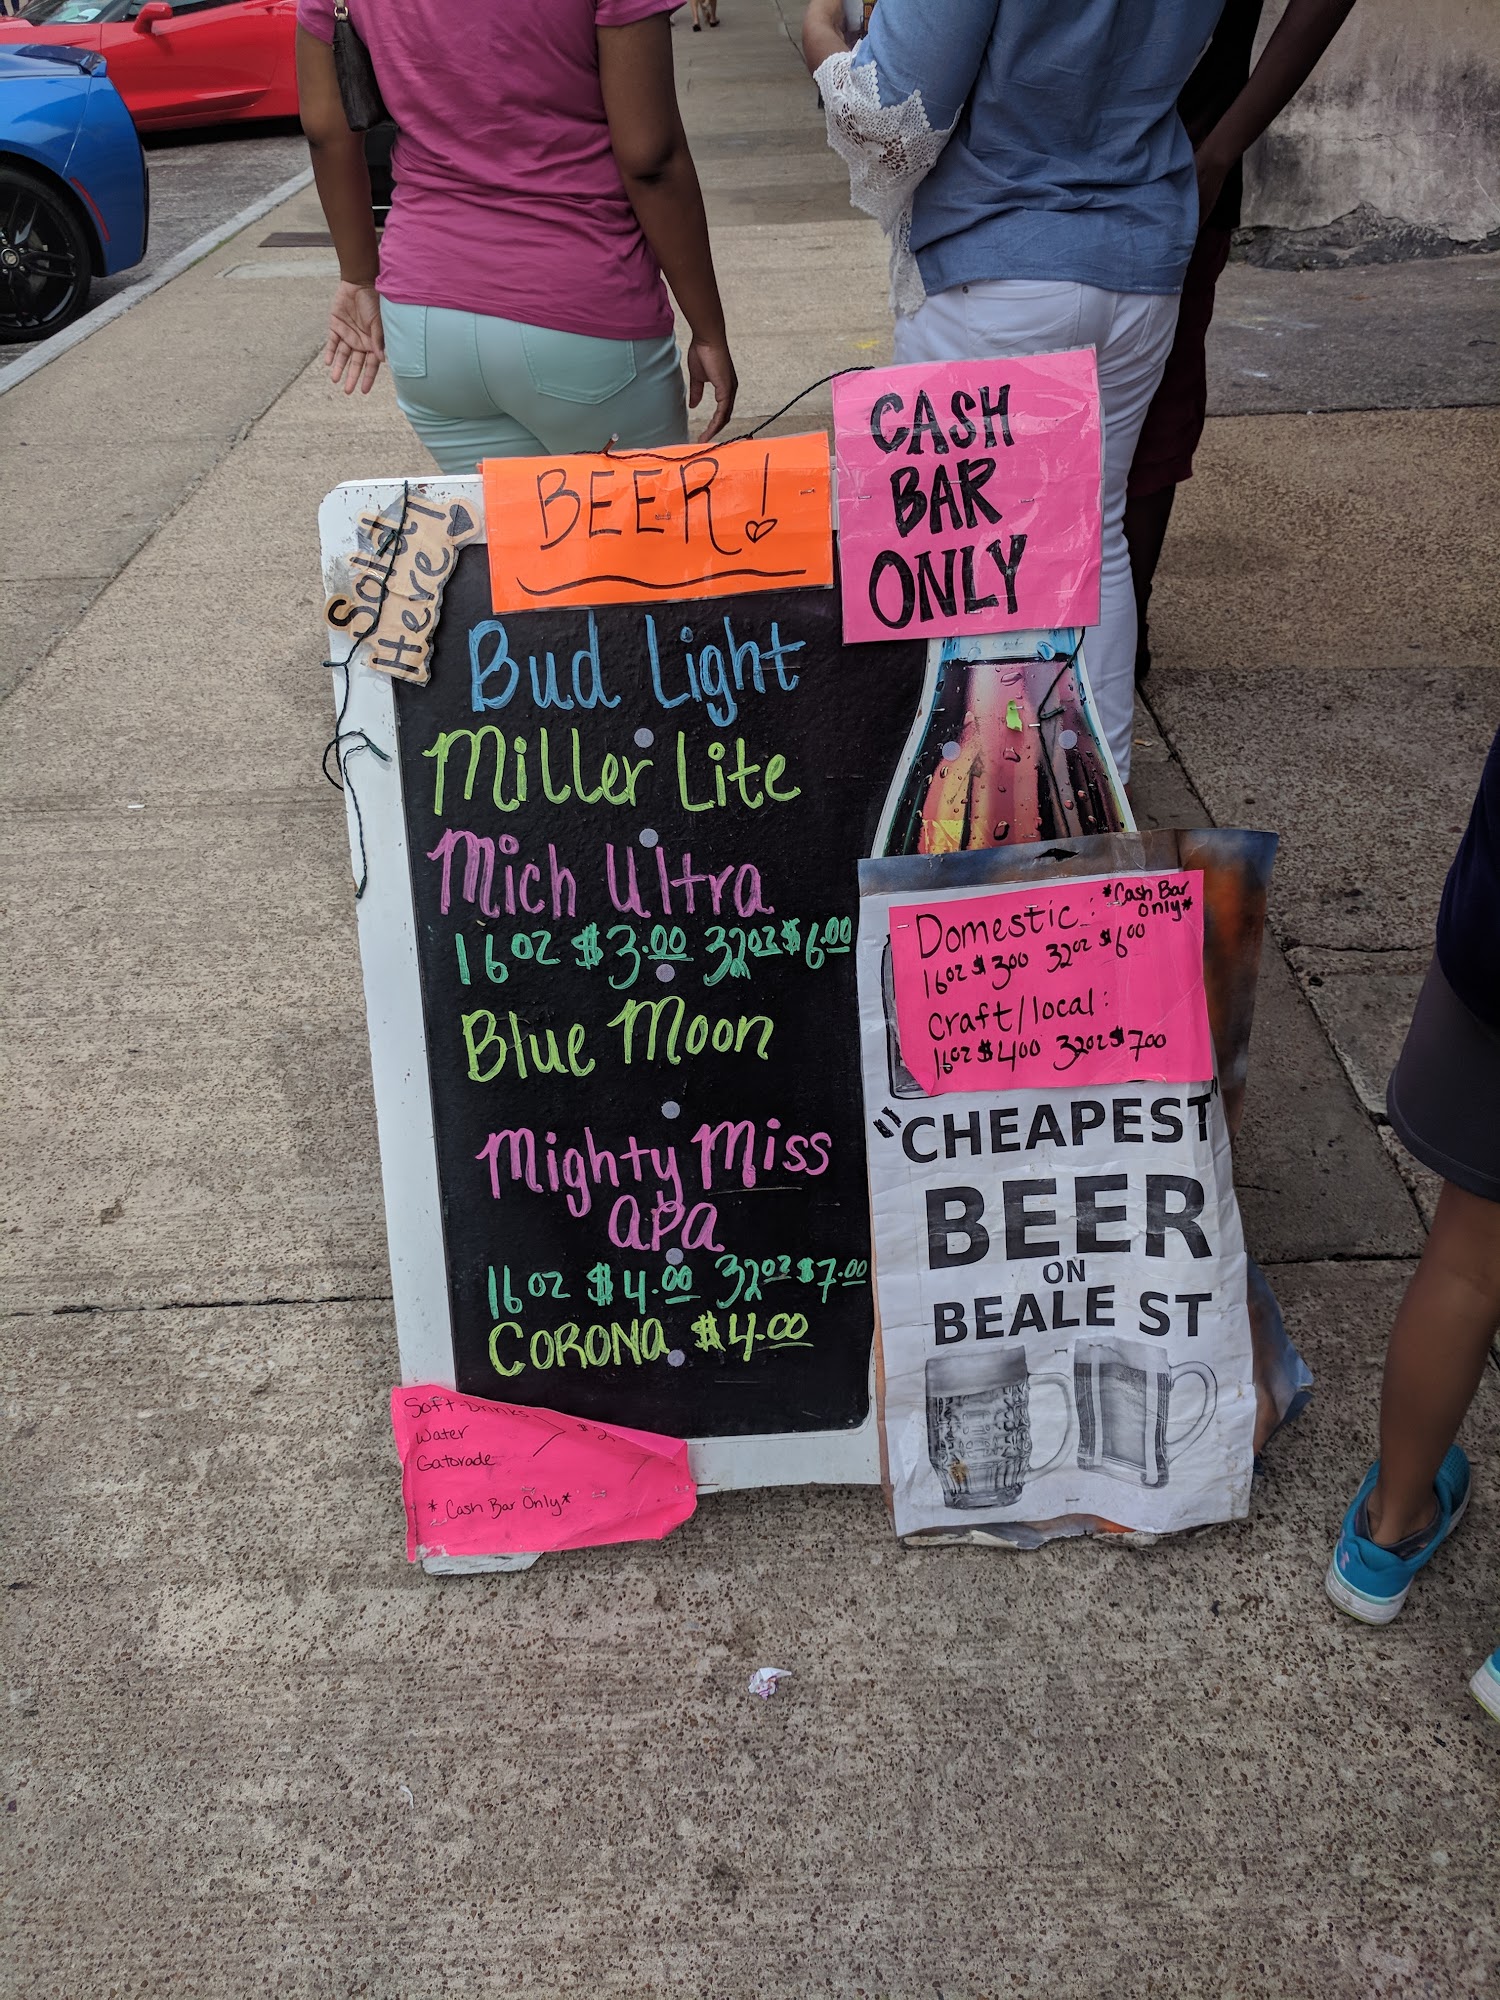 Sold
Here
BEER!
CASH
BAR
ONLY
Bud Light
Miller Lite
Mich Ultra
16oz $3.00 32oz $6.00
Blue Moon
Mighty Miss
APA
16oz $4.00 32oz $7.00
CORONA $4.00
Soft-Drinks
Water
Gatorade
*Cash Bar Only*
Domestic: *Cash Bar
only*
16oz $300 32oz $600
Craft/local:
16oz $400 32oz $700
"CHEAPEST"
BEER
ON
BEALE ST